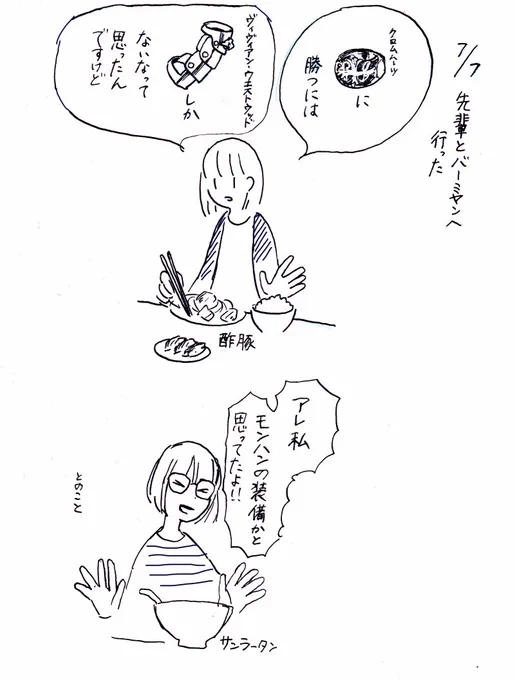 7/7 先輩とバーミヤンへ
行った
クロムハーツ
に
勝つには
ヴィヴィアン・ウエストウッド
しか
ないなって
思ったん
ですけど
酢豚
アレ私
モンハンの装備かと
思ってたよ!!
とのこと
サンラータン